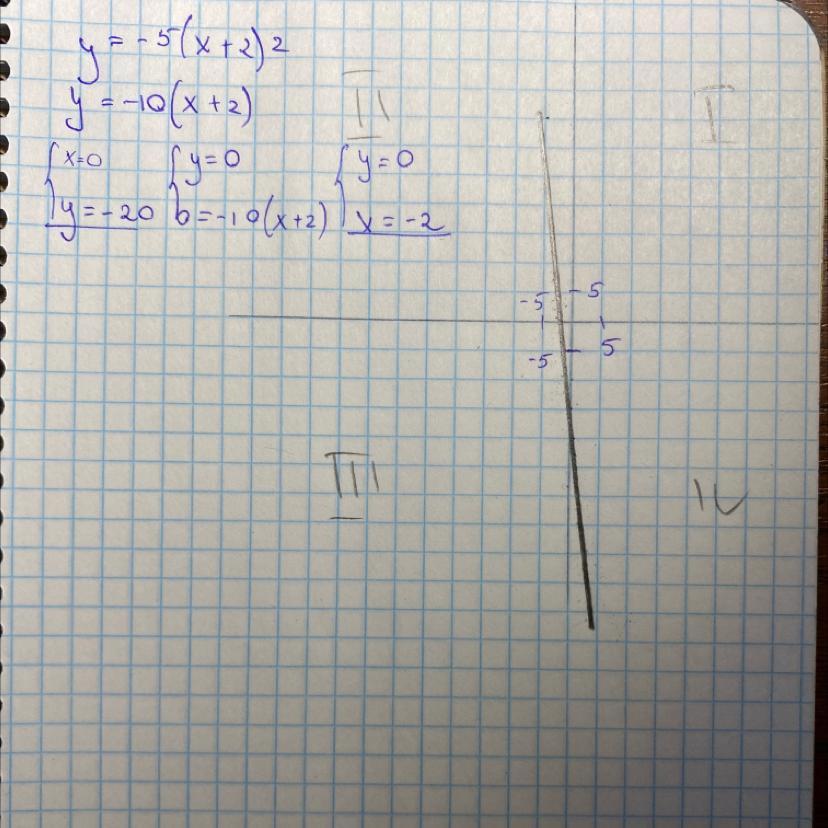 y = -5(x+2)2
y = -10(x+2)
{x=0 {y=0 {y=0
y=-20 0=-10(x+2) x=-2
II
I
-5 -5
-5 5
III
IV